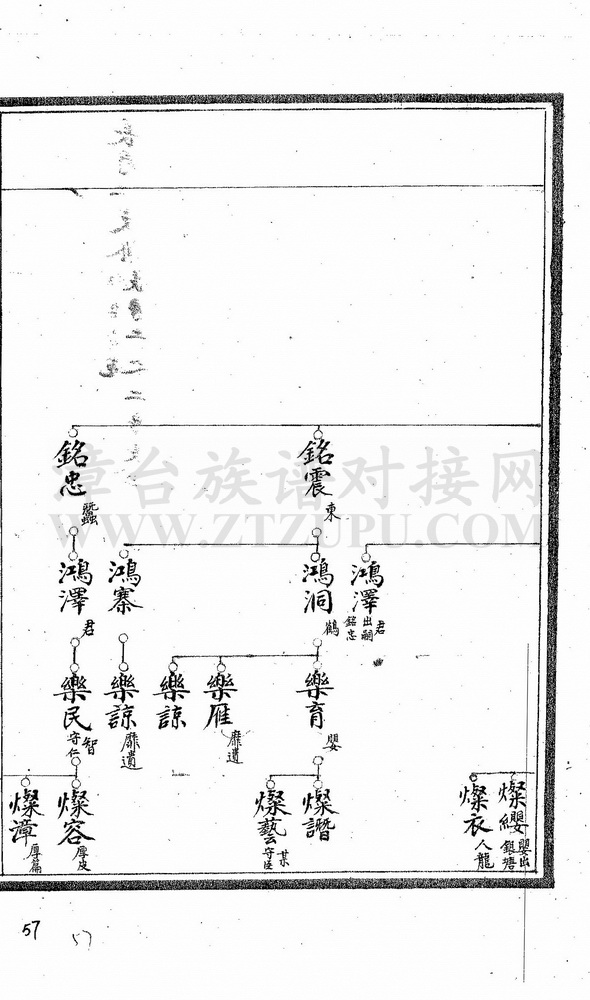 銘震
東
銘忠
蠶
鴻澤
君
出嗣
銘忠
鴻洞
鶴
鴻寨
鴻澤
君
樂育
嬰
樂雁
靡遺
樂諒
樂諒
靡遺
樂民
智
守仁
燦纓
嬰出
銀塘
燦衣
人龍
燦譖
燦藝
守臣
燦容
厚皮
燦漳
厚篇
章台族谱对接网
WWW.ZTZUPU.COM
57
57